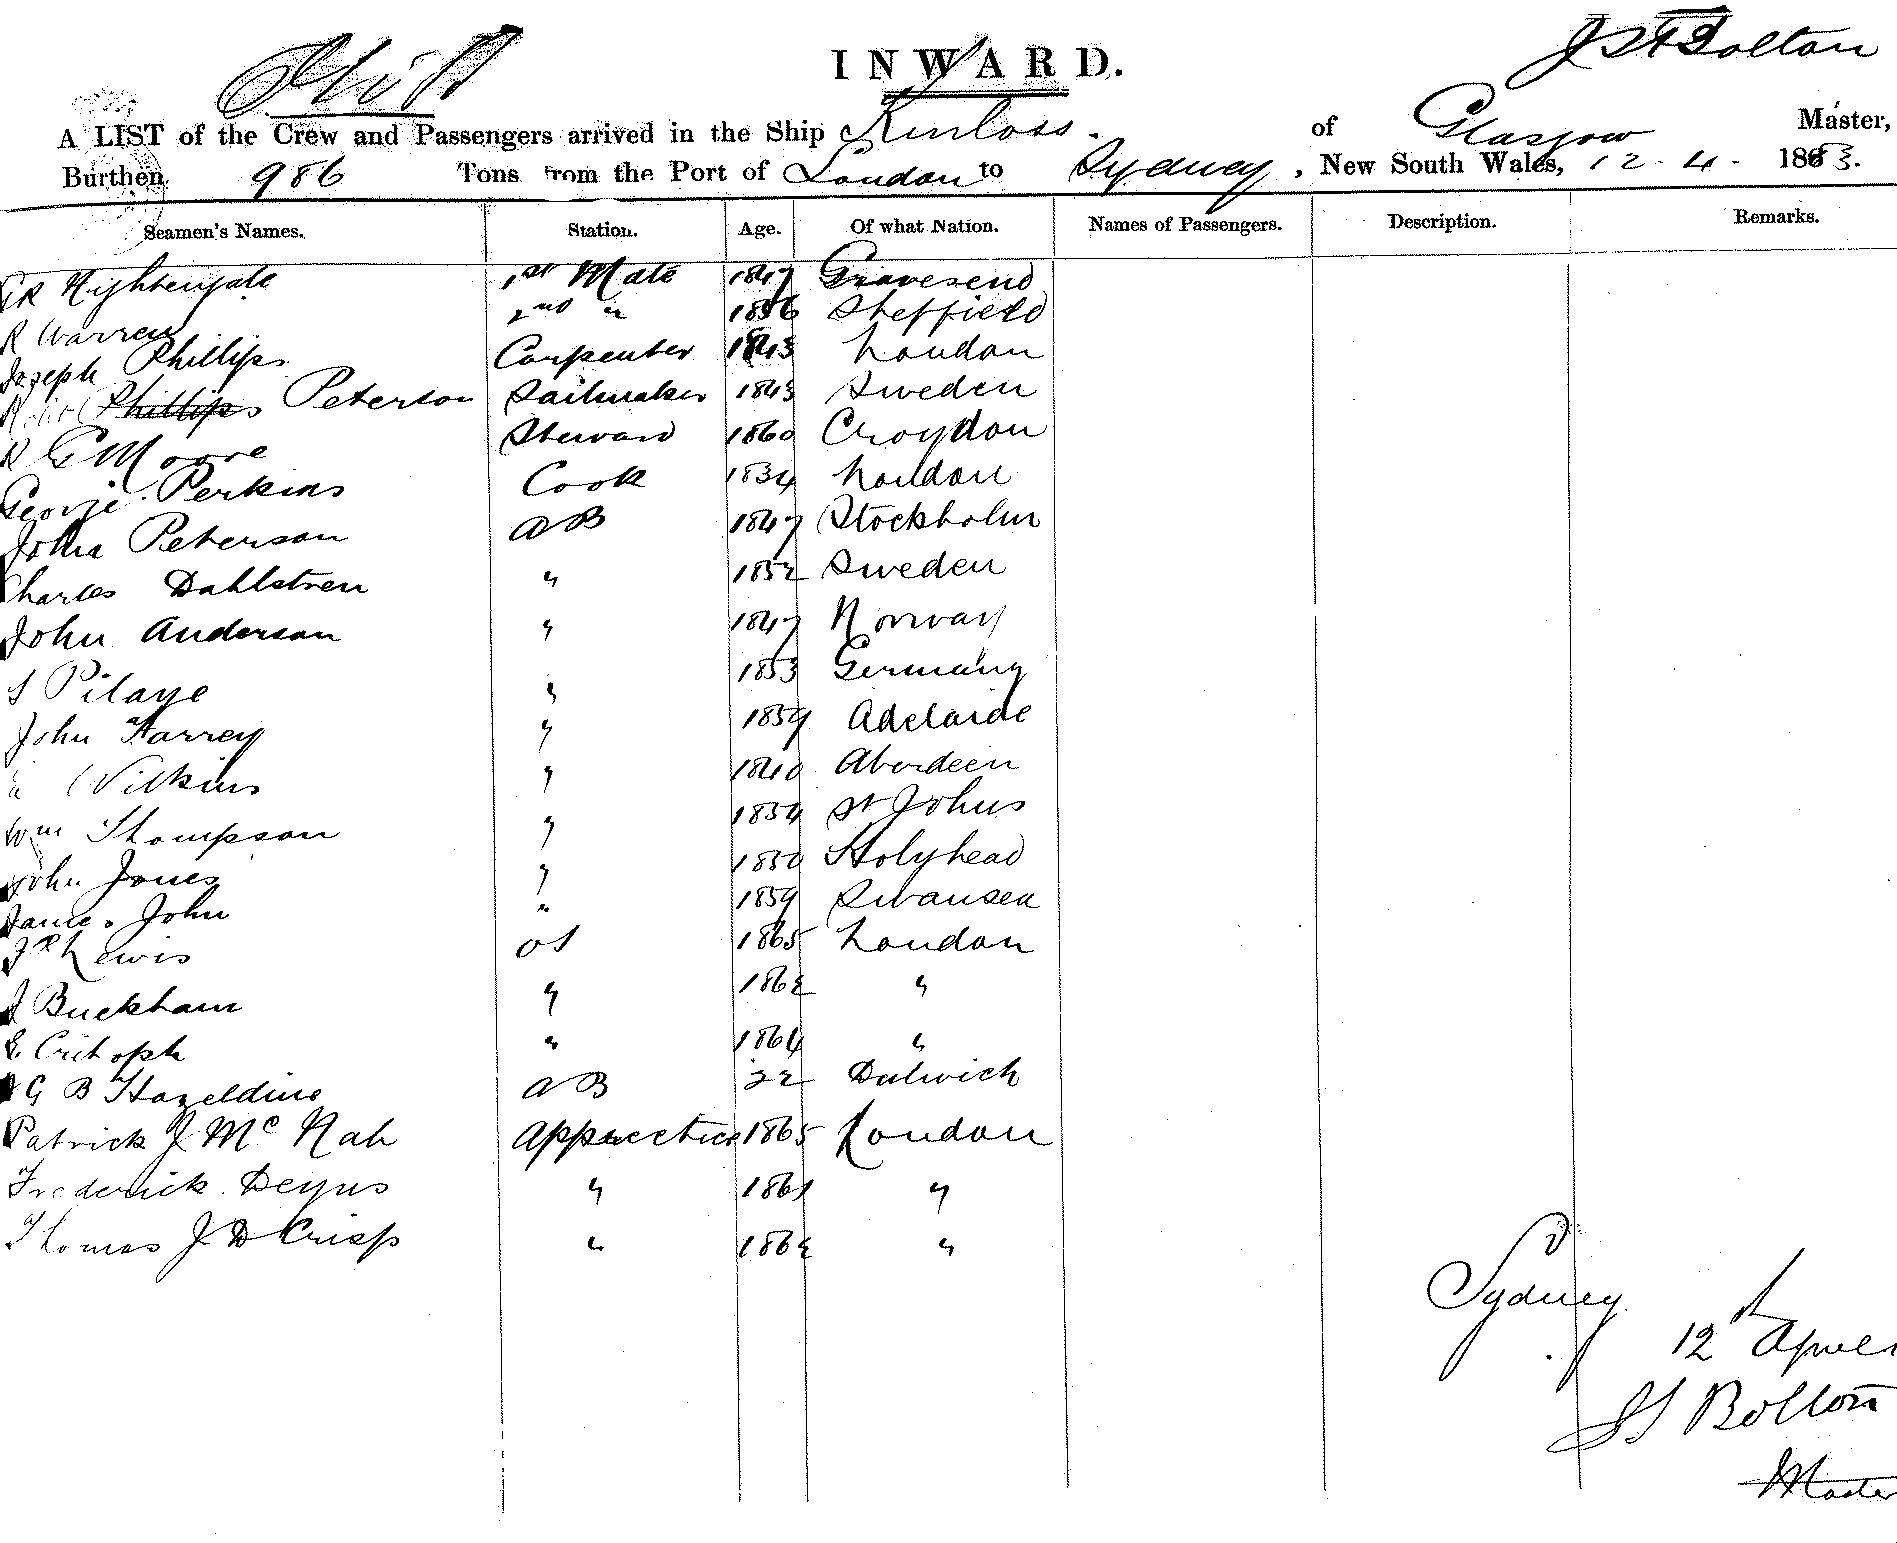 INWARD.
J S Bolton
A LIST of the Crew and Passengers arrived in the Ship Kinloss. of Glasgow Master,
Burthen 986 Tons from the Port of London to Sydney, New South Wales, 12 - 4 - 1883.
Seamen's Names. Station. Age. Of what Nation. Names of Passengers. Description. Remarks.
Nightengale 1st Mate 1847 Gravesend
R Warren 2nd " 1856 Sheffield
Joseph Phillips Carpenter 1843 London
Phillips Peterson Sailmaker 1843 Sweden
R G Moore Steward 1860 Croydon
George Perkins Cook 1834 London
John Peterson AB 1847 Stockholm
Charles Dahlstren " 1852 Sweden
John Anderson " 1847 Norway
" 1853 Germany
John Harrey " 1859 Adelaide
" Wilkins " 1840 Aberdeen
Wm Thompson " 1854 St Johns
John Jones " 1850 Holyhead
James John " 1859 Swansea
Lewis OS 1865 London
J Buckham " 1862 "
E. Critoph " 1864 "
G B Hazeldine AB 22 Dulwich
Patrick J McNah Apprectice 1865 London
Frederick Deyns " 1861 "
Thomas J D Crisp " 1862 "
Sydney
12th April
J S Bolton
Master